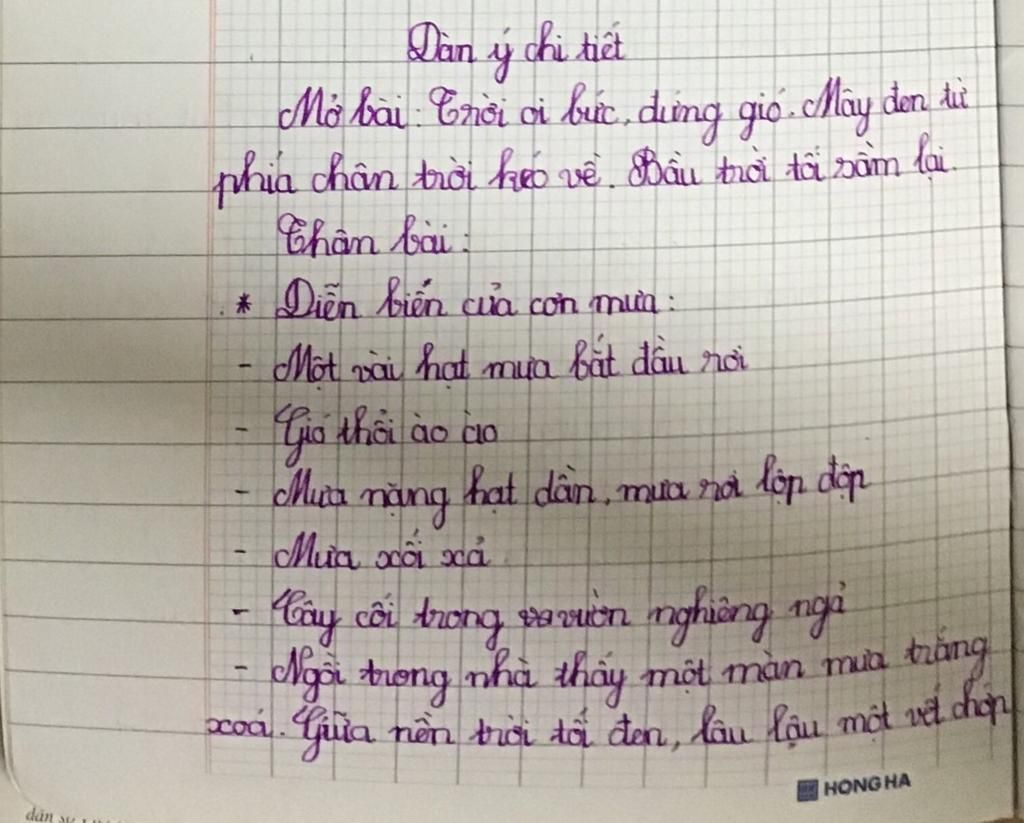 Dàn ý chi tiết
Mở bài: Trời oi bức, đứng gió. Mây đen từ
phía chân trời kéo về. Bầu trời tối sầm lại.
Thân bài:
* Diễn biến của cơn mưa:
- Một vài hạt mưa bắt đầu rơi
- Gió thổi ào ào
- Mưa nặng hạt dần, mưa rơi lộp độp
- Mưa xối xả
- Cây cối trong vườn nghiêng ngả
- Ngồi trong nhà thấy một màn mưa trắng
xoá. Giữa nền trời tối đen, lâu lâu một vết chớp
HONG HA